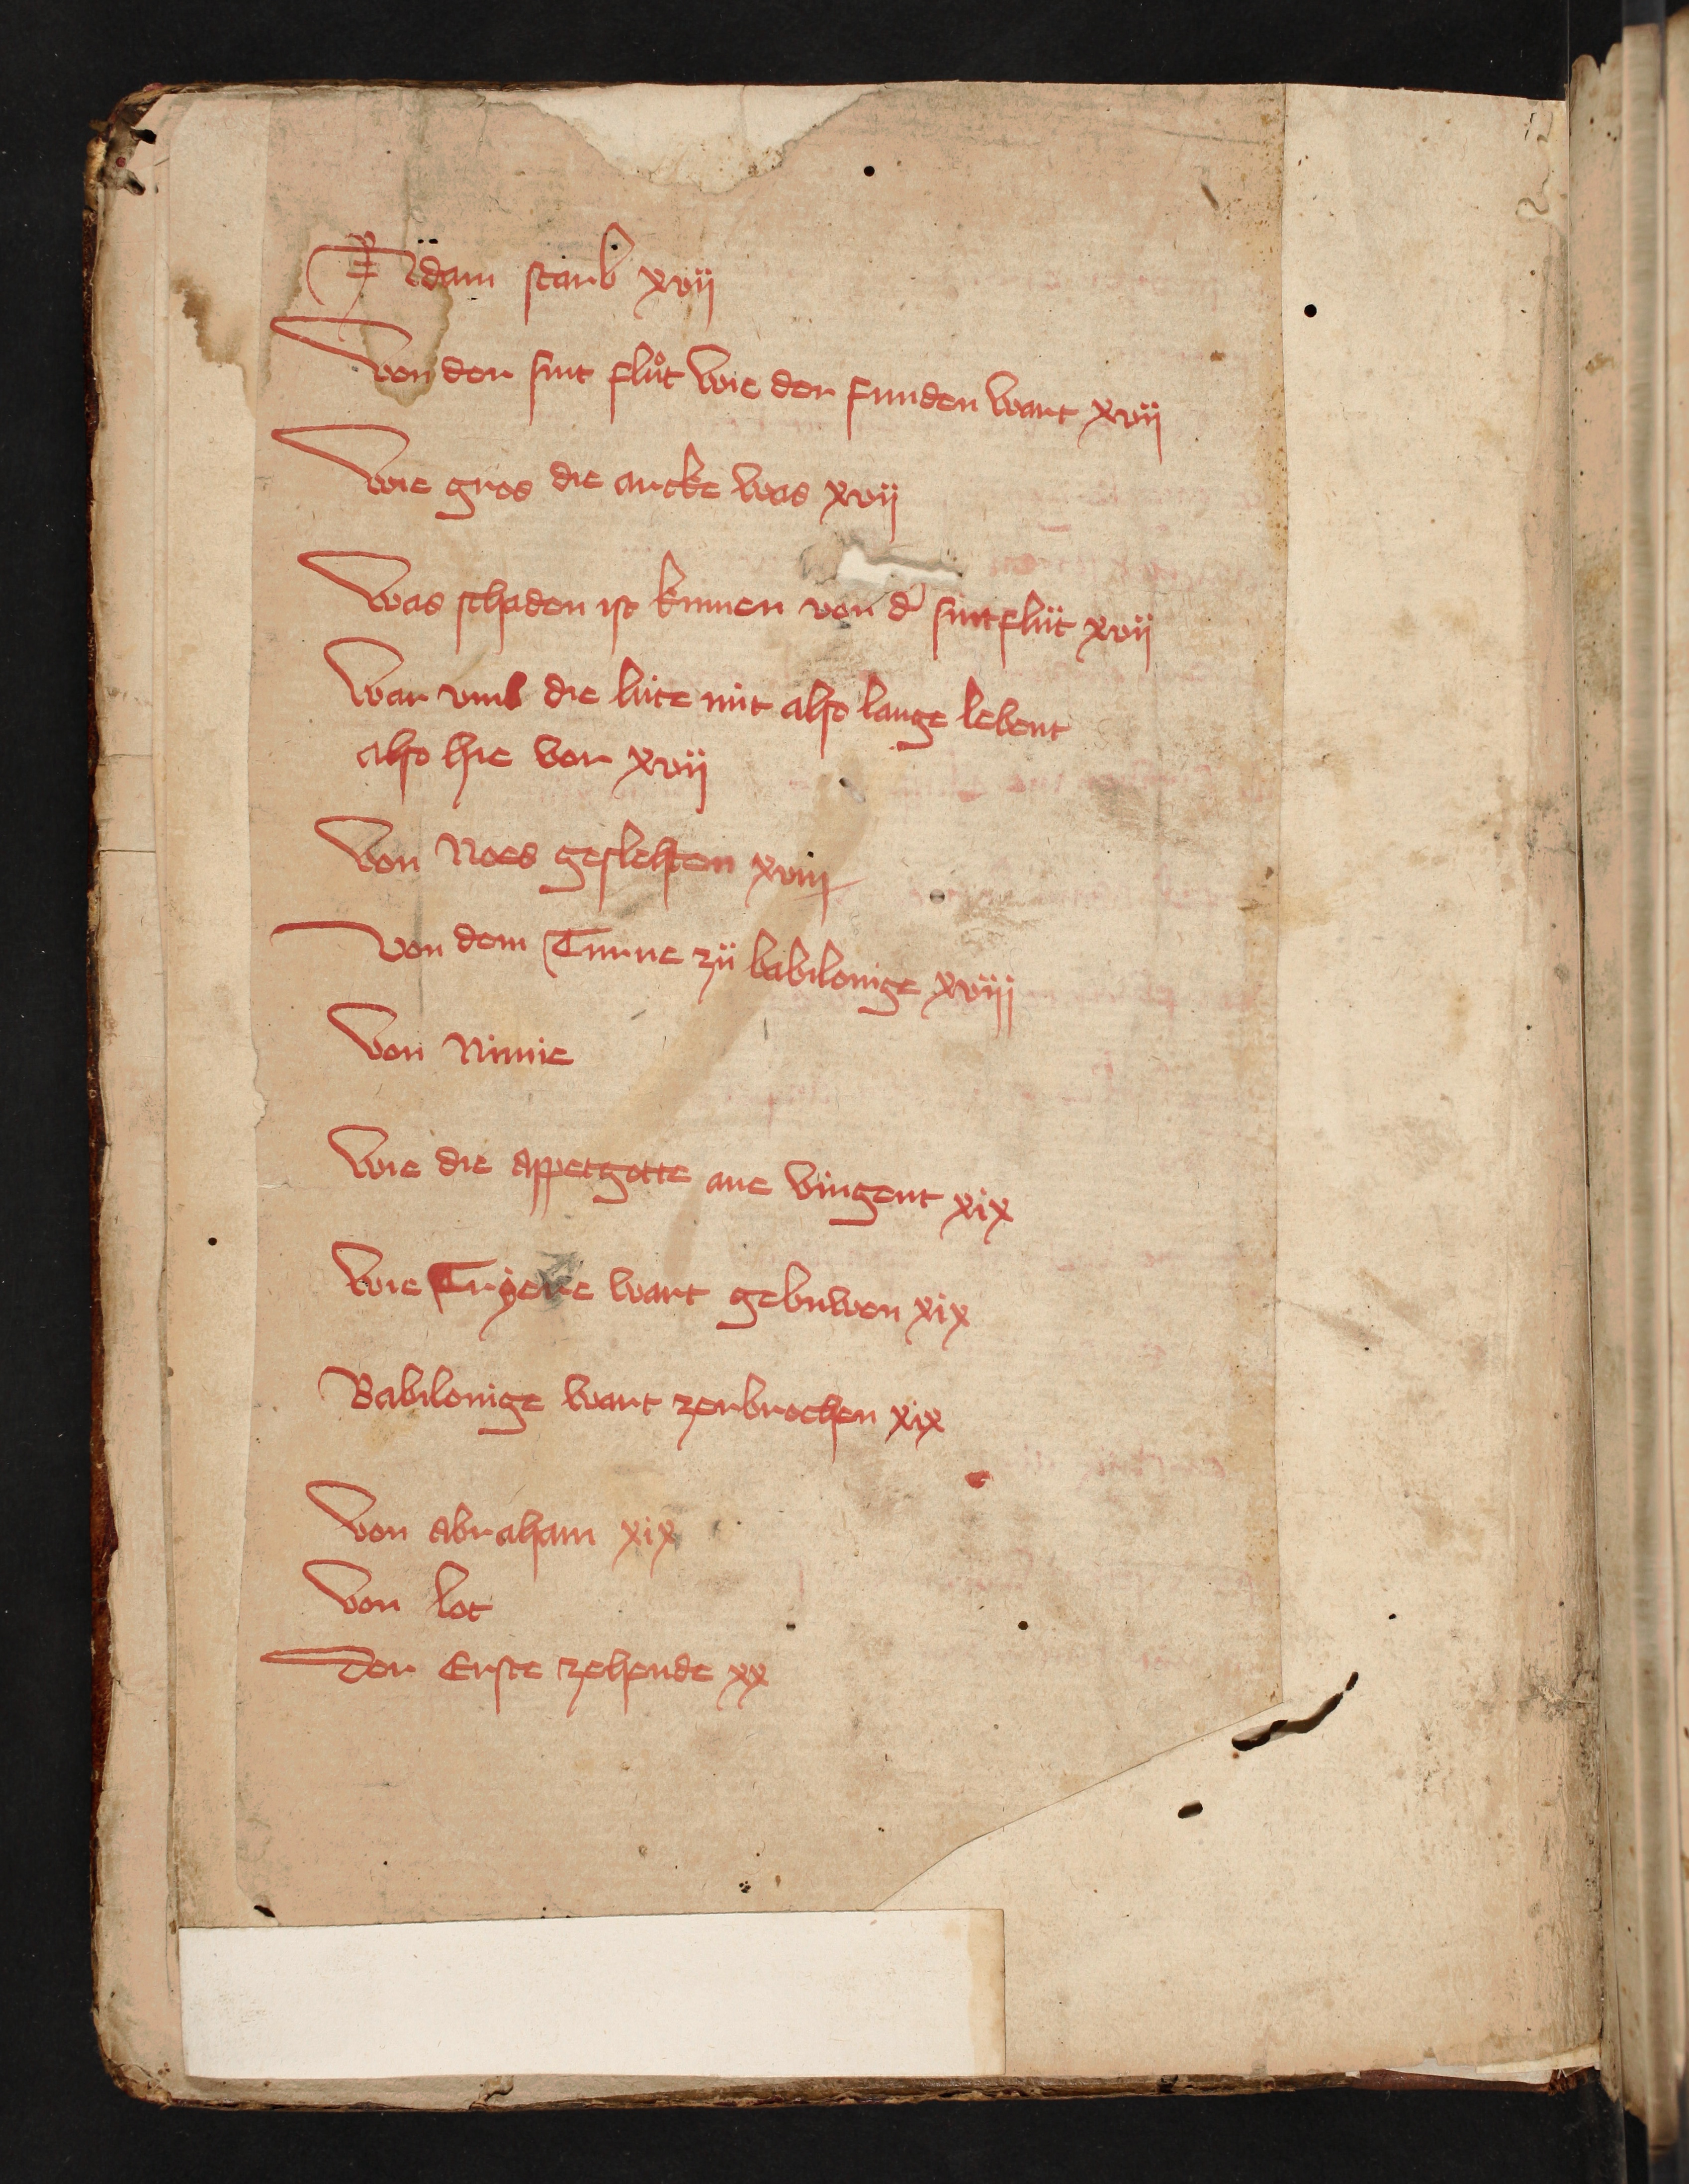 Adam starb xvij
Von der sint flůt wie der funden wart xvij
Wie gros die arcke was xvij
Was schaden ist kumen von d' sintflüt xvij
War vmb die lüte nüt also lange lebent
also hie vor xvij
Von Noes geslehten xviij
Von dem Turne zü babilonige xviij
Von Ninnie
Wie die appetgötte ane vingent xix
Wie Tryere wart gebuwen xix
Babilonige wart zerbrochen xix
Von Abraham xix
Von lot
Der Erste zehende xx